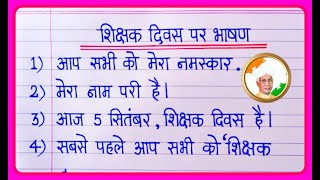 शिक्षक दिवस पर भाषण
1) आप सभी को मेरा नमस्कार.
2) मेरा नाम परी है।
3) आज 5 सितंबर, शिक्षक दिवस है।
4) सबसे पहले आप सभी को ‘शिक्षक